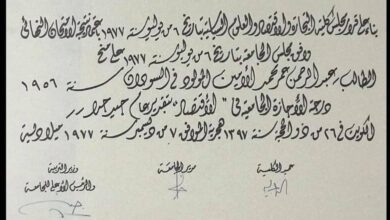 بناء على قرار مجلس كلية التجارة والاقتصاد والعلوم السياسية بتاريخ ٦ من يوليو سنة ١٩٧٧ على نتيجة الامتحان النهائي
وافق مجلس الجامعة بتاريخ ٦ من يوليو سنة ١٩٧٧ على منح
الطالب عبد الرحمن حمد محمد الأمين المولود في السودان ١٩٥٦
درجة الإجازة الجامعية في "الاقتصاد" بتقدير عام جيد جدا
الكويت في ٢٦ من ذو الحجة سنة ١٣٩٧ هجرية الموافق ٧ من ديسمبر سنة ١٩٧٧ ميلادية
عميد الكلية
مدير الجامعة
وزير التربية
والرئيس الأعلى للجامعة